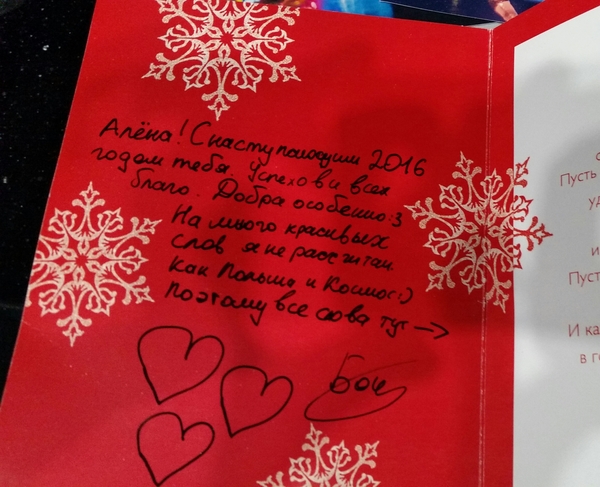 Алёна! С наступающим 2016
годом тебя. Успехов и всех
благ. Добра особенно :3
На много красивых
слов я не рассчитан.
Как Польша и Космос :)
Поэтому все слова тут →
Пусть
И ка
в г